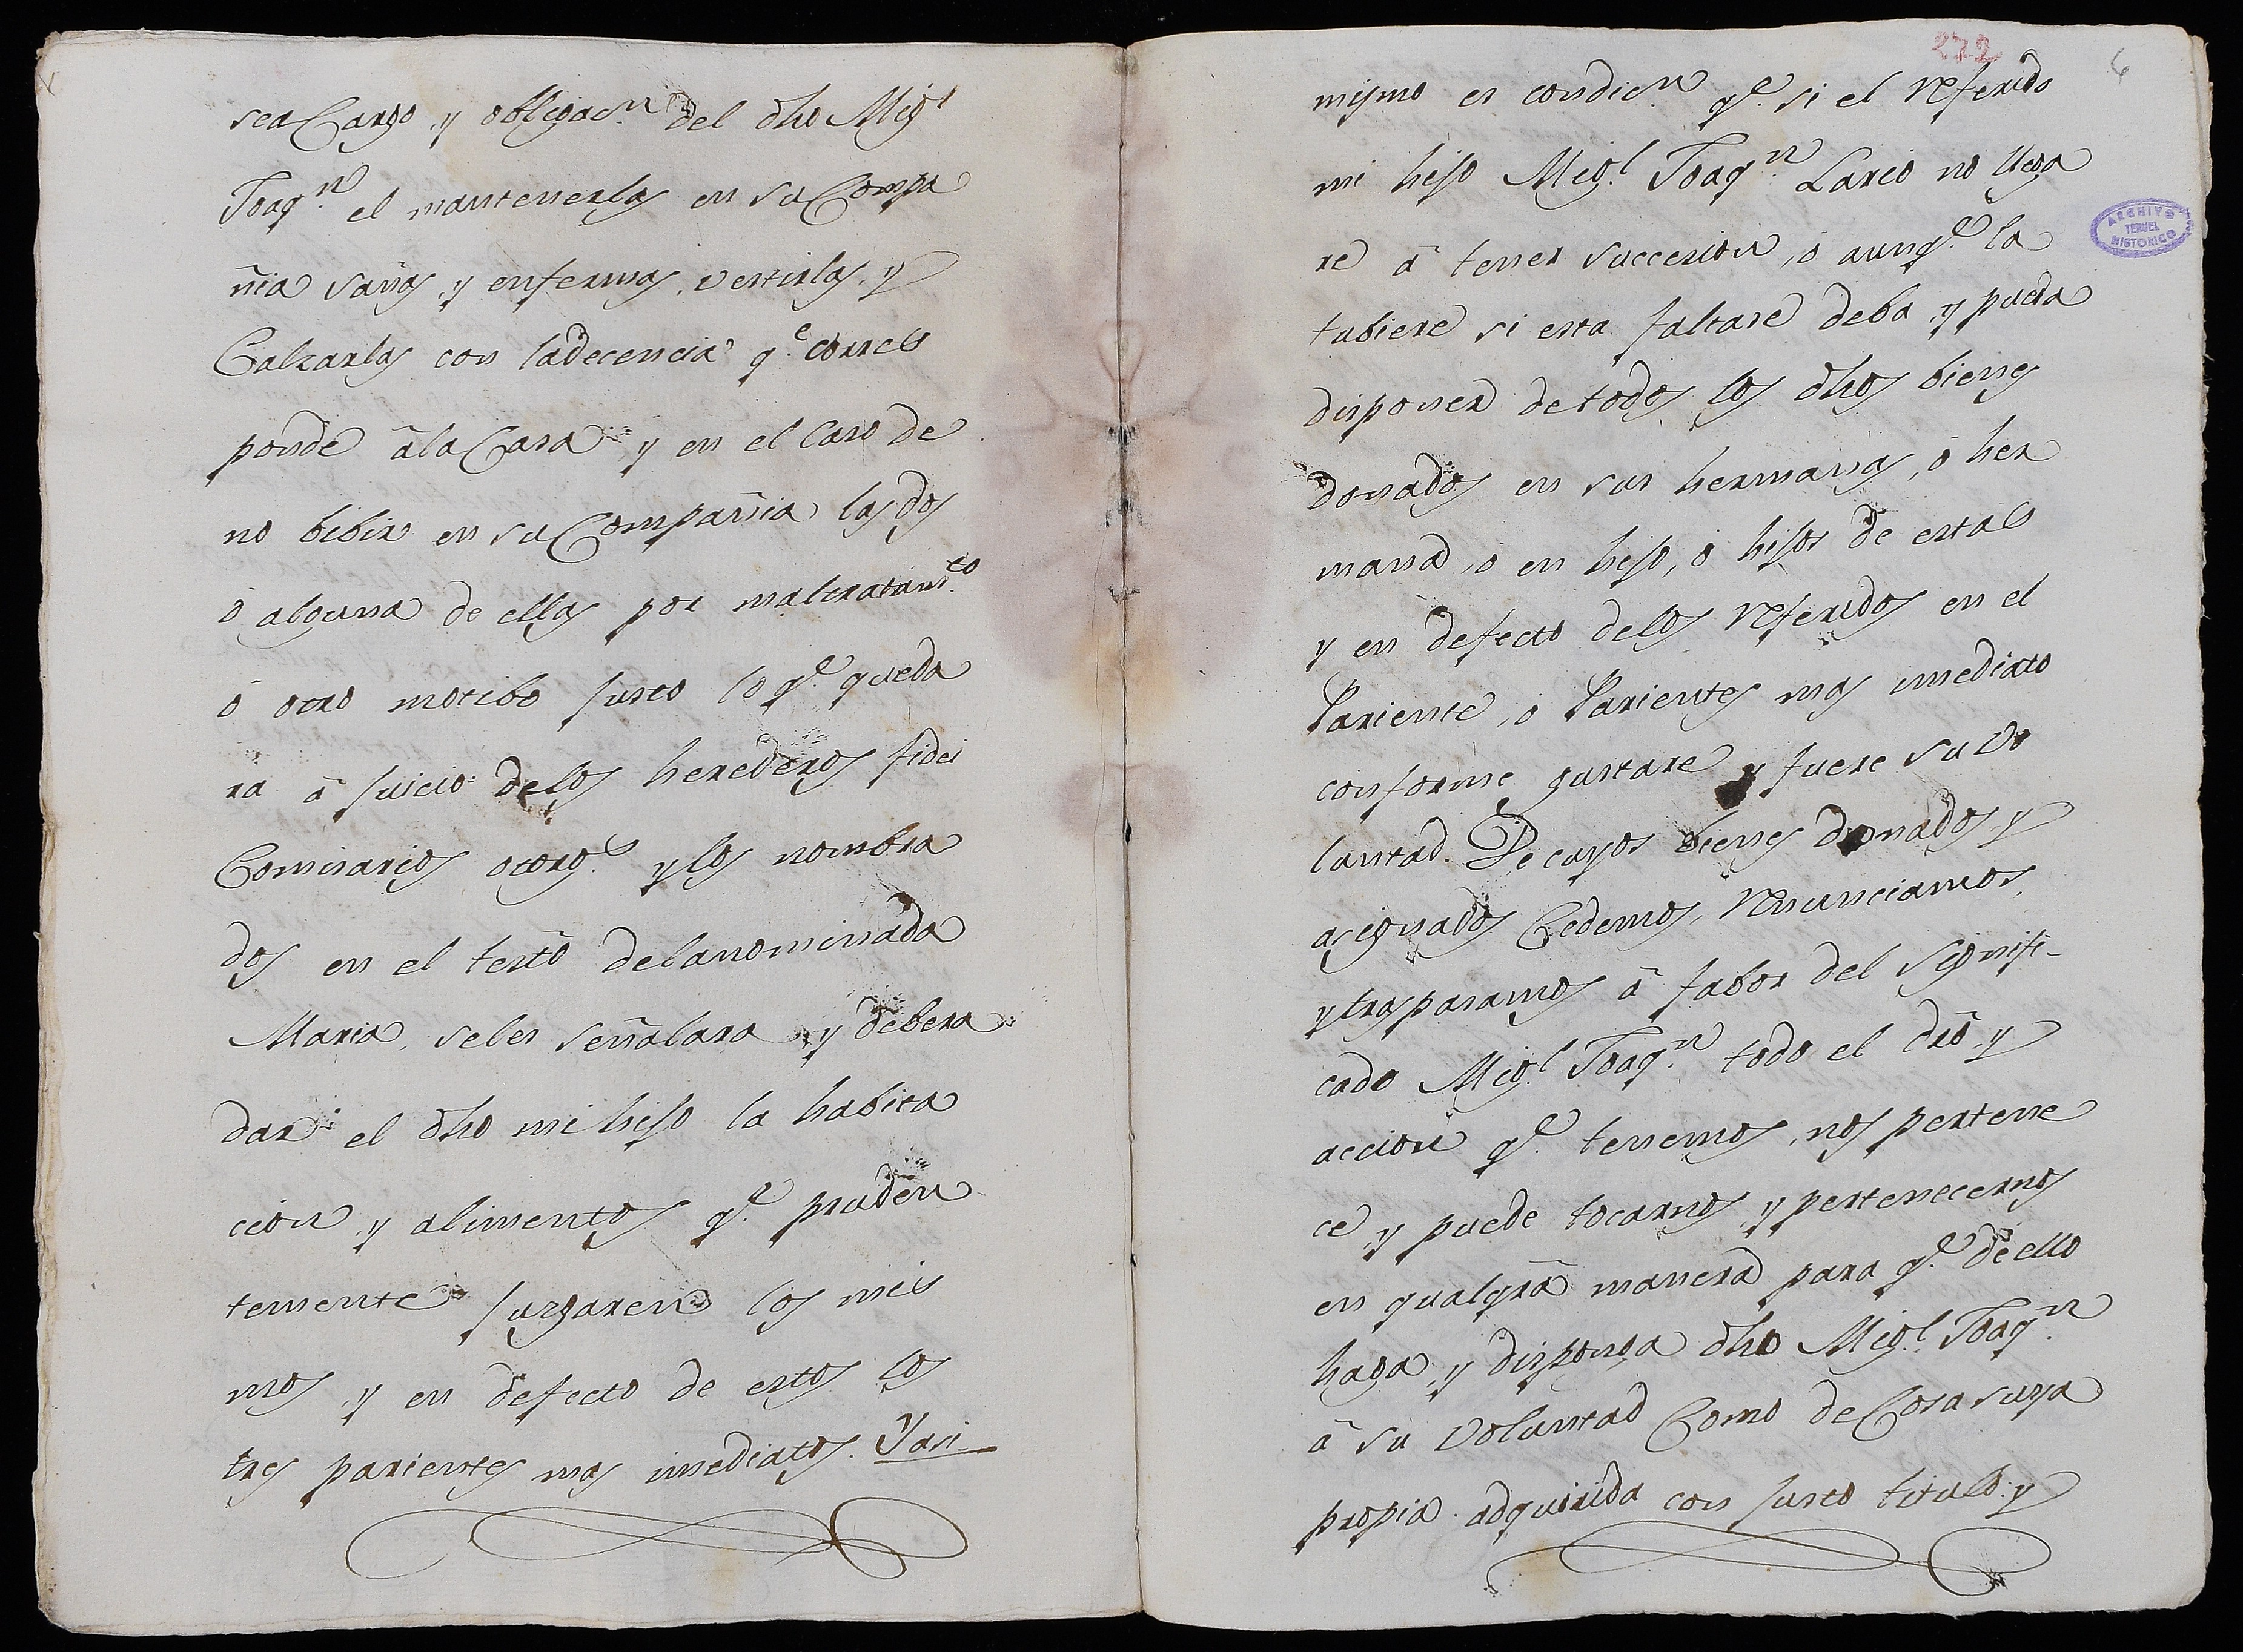 sea Cargo y obligac.n del dho Mig.l
Joaq.n el mantenerlas en su Compa
ñia sanas y enfermas, vestirlas, y
Calzarlas con la decencia q.e corres
ponde â la Casa y en el Caso de
no bibir en su Compañia las dos
ó alguna de ellas por maltratam.to
ó otro motibo justo lo q.e queda
ra â juicio delos herederos fidei
Comisarios otorg.s y los nombra
dos en el testō dela nominada
Maria, seles señalara y debera
dar el dho mi hijo la habita
cion y alimentos q.e pruden
temente juzgaren los mis
mos y en defecto de estos los
tres parientes mas imediatos. Y asi
272
6
mismo es condic.n q.e si el referido
mi hijo Mig.l Joaq.n Lario no llega
re â tener succesion, ó aunq.e la
tubiere si esta faltase deba y pueda
disponer de todos los dhos bienes
donados en sus hermanas, ó her
mana ó en hijo, ó hijos de estas
y en defecto delos referidos en el
Pariente, o Parientes mas imediato
conforme gustare y fuere su vo
luntad. De cuyos bienes donados y
asignados Cedemos, renunciamos,
y traspasamos â fabor del signifi-
cado Mig.l Joaq.n todo el drō y
accion q.e tenemos, nos pertene
ce y puede tocarnos y pertenecernos
en qualqrā manera para q.e de ello
haga y disponga dho Mig.l Joaq.n
â su voluntad Como de Cosa suya
propia adquirida con justo titulo y
ARCHIVO
TERUEL
HISTORICO